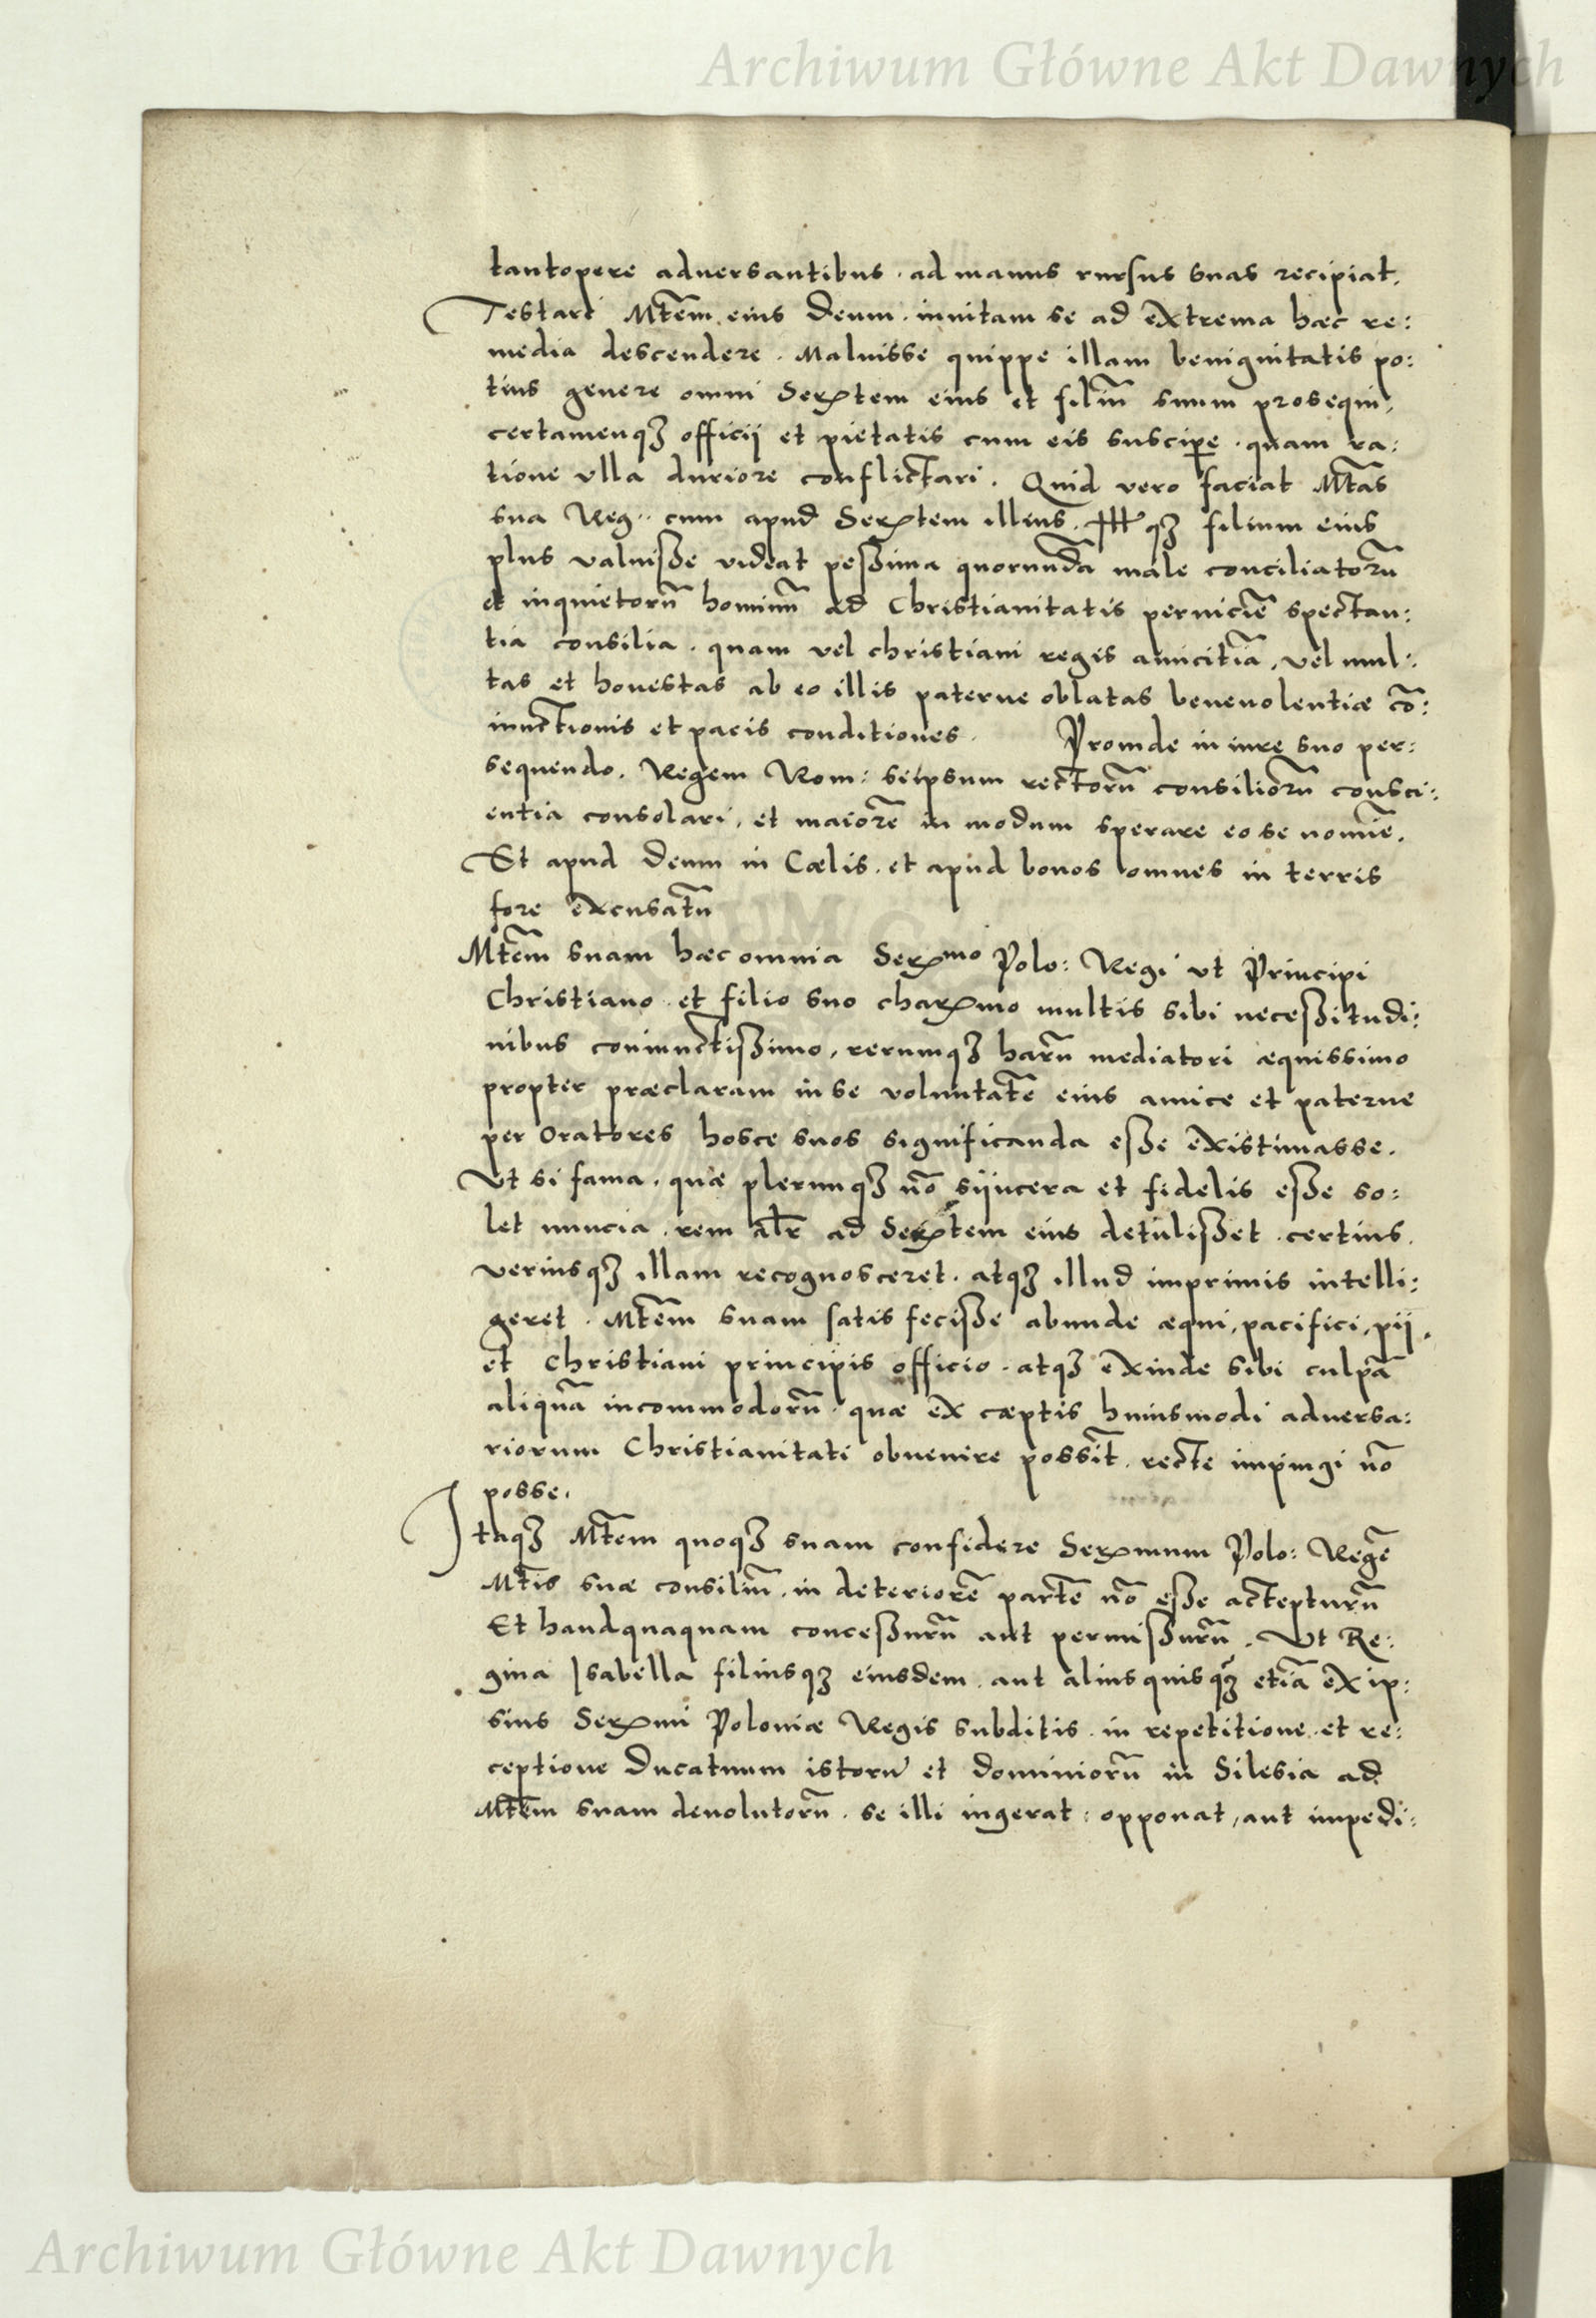 Archiwum Główne Akt Dawnych
tantopere aduersantibus · ad manus rursus suas recipiat.
Testari Mtẽm eius Deum · inuitam se ad extrema hæc re:
media descendere · Maluisse quippe illam benignitatis po:
tius genere omni Serxtem eius et filiũ suum prosequi,
certamenqȝ officij et pietatis cum eis suscipe · quam ra:
tione vlla duriore conflictari. Quid vero faciat Mtãs
sua Reg·· cum apud Serxtem illius · Illqȝ filium eius
plus valuisse videat pessima quorundã male conciliatorũ
et inquietorũ hominũ ad Christianitatis perniciẽ spectan:
tia consilia · quam vel christiani regis amicitiã, vel mul:
tas et honestas ab eo illis paterne oblatas beneuolentiæ cõ:
iunctionis et pacis conditiones. Proinde in iure suo per:
sequendo. Regem Rom: seipsum rectorũ consiliorũ consci:
entia consolari, et maiorẽ in modum sperare eo se nomiẽ.
Et apud Deum in Cælis · et apud bonos omnes in terris
fore excusatũ
Mtẽm suam hæc omnia Serxmo Polo: Regi vt Principi
Christiano · et filio suo charxmo multis sibi necessitudi:
nibus coniunctissimo, rerumqȝ harũ mediatori æquissimo
propter præclaram in se voluntatẽ eius amice et paterne
per Oratores hosce suos significanda esse existimasse.
Vt si fama · quæ plerumqȝ nõ sijncera et fidelis esse so:
let nuncia · rem alr̃ ad Serxtem eius detulisset · certius.
veriusqȝ illam recognosceret · atqȝ illud imprimis intelli:
geret · Mtẽm suam satis fecisse abunde æqui, pacifici, pij,
et Christiani principis officio · atqȝ exinde sibi culpã
aliquã incommodorũ · quæ ex cæptis huiusmodi aduersa:
riorum Christianitati obuenire possĩt · recte impingi nõ
posse.
Itaqȝ Mtẽm quoqȝ suam confidere Serxmum Polo: Regẽ
Mtĩs suæ consiliũ · in deteriorẽ partẽ nõ esse acteptururũ
Et haudquaquam concessurũ aut permissurũ. Vt Re:
gina Isabella filiusqȝ eiusdem · aut alius quisqȝ etiã ex ip:
sius Serxmi Poloniæ Regis subditis · in repetitione · et re:
ceptione Ducatuum istorũ et dominiorũ in Silesia ad
Mtẽm suam deuolutorũ · se illi ingerat : opponat, aut impedi:
Archiwum Główne Akt Dawnych